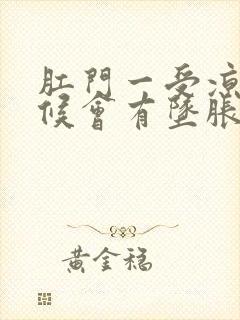 肛門一受凉
候會有墜脹
黃金穩